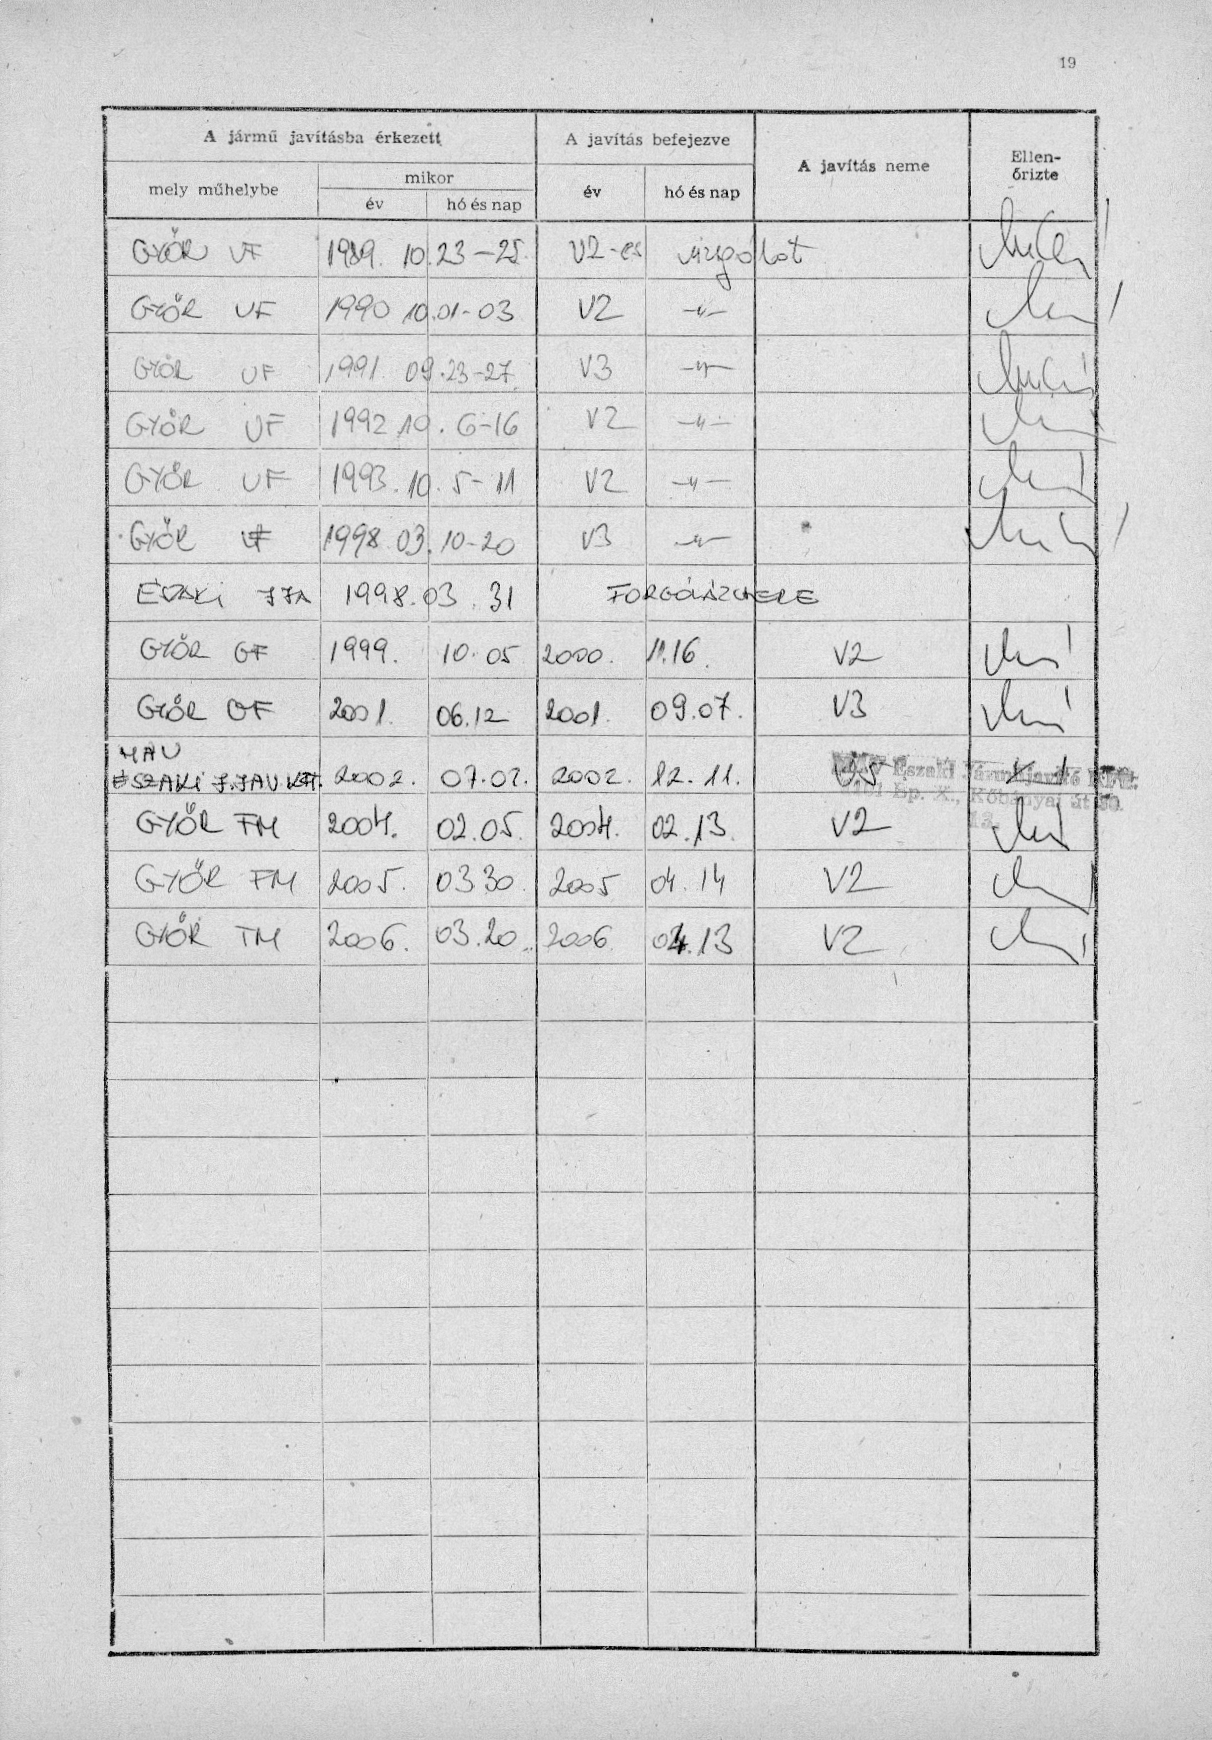 19
A jármű javításba érkezett
A javítás befejezve
A javítás neme
Ellen-
őrizte
mely műhelybe
mikor
év
hó és nap
év
hó és nap
GYŐR VF 1989. 10.23-25. V2-es vizsgálat
GYŐR VF 1990 10.01-03 V2 -〃-
GYŐR VF 1991 09.23-27. V3 -〃-
GYŐR VF 1992 10. 6-16 V2 -〃-
GYŐR VF 1993. 10. 5-11 V2 -〃-
GYŐR VF 1998 03. 10-20 V3 -〃-
ÉSZAKI JJA 1998.03.31 FORGÓVÁZCSERE
GYŐR GF 1999. 10.05 2000. 11.16. V2
GYŐR GF 2001. 06.12 2001. 09.07. V3
MÁV
ÉSZAKI J.JAV KFT. 2002. 07.02. 2002. 12.11.
Északi Járműjavító Kft.
Bp. X., Kőbányai út 30.
GYŐR FM 2004. 02.05. 2004. 02.13. V2
GYŐR FM 2005. 03 30. 2005 04.14 V2
GYŐR TM 2006. 03.20. 2006. 04.13 V2